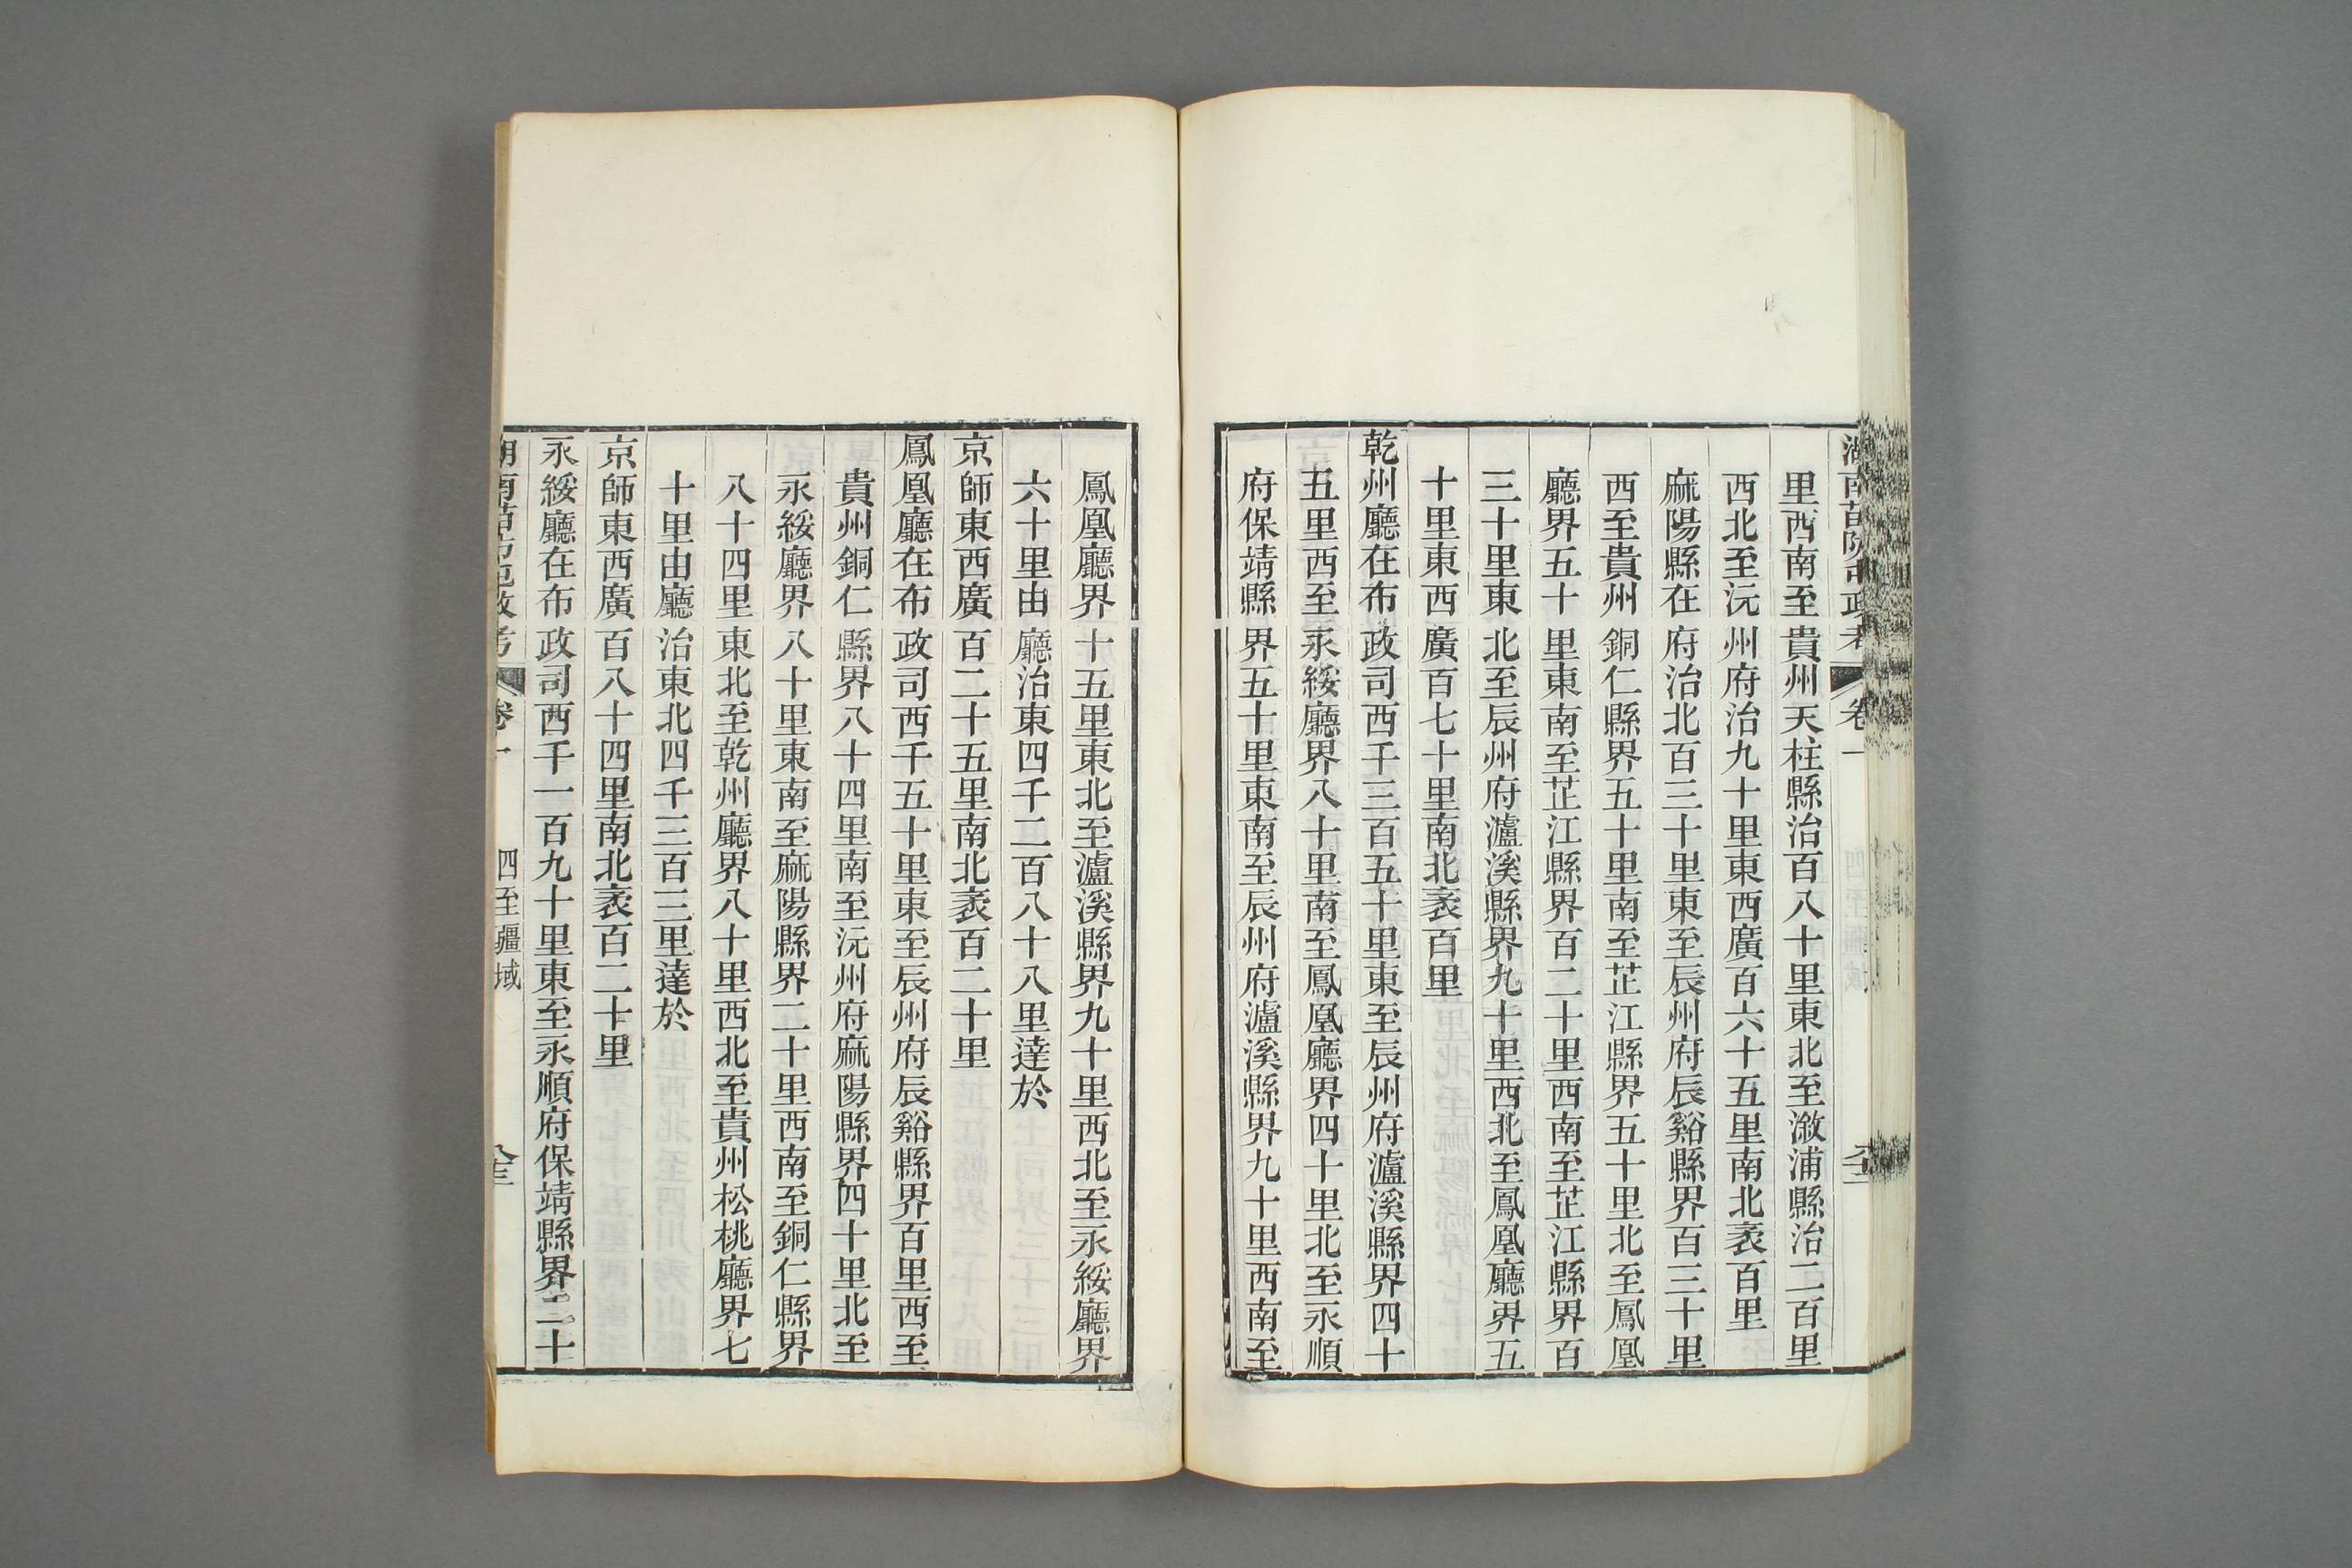 湖南苗防屯政考 卷一
里西南至貴州天柱縣治百八十里東北至漵浦縣治二百里
西北至沅州府治九十里東西廣百六十五里南北袤百里
麻陽縣在府治北百三十里東至辰州府辰谿縣界百三十里
西至貴州銅仁縣界五十里南至芷江縣界五十里北至鳳凰
廳界五十里東南至芷江縣界百二十里西南至芷江縣界百
三十里東北至辰州府瀘溪縣界九十里西北至鳳凰廳界五
十里東西廣百七十里南北袤百里
乾州廳在布政司西千三百五十里東至辰州府瀘溪縣界四十
五里西至永綏廳界八十里南至鳳凰廳界四十里北至永順
府保靖縣界五十里東南至辰州府瀘溪縣界九十里西南至
鳳凰廳界十五里東北至瀘溪縣界九十里西北至永綏廳界
六十里由廳治東四千二百八十八里達於
京師東西廣百二十五里南北袤百二十里
鳳凰廳在布政司西千五十里東至辰州府辰谿縣界百里西至
貴州銅仁縣界八十四里南至沅州府麻陽縣界四十里北至
永綏廳界八十里東南至麻陽縣界二十里西南至銅仁縣界
八十四里東北至乾州廳界八十里西北至貴州松桃廳界七
十里由廳治東北四千三百三里達於
京師東西廣百八十四里南北袤百二十里
永綏廳在布政司西千一百九十里東至永順府保靖縣界二十
湖南苗防屯政考 卷一 四至疆域